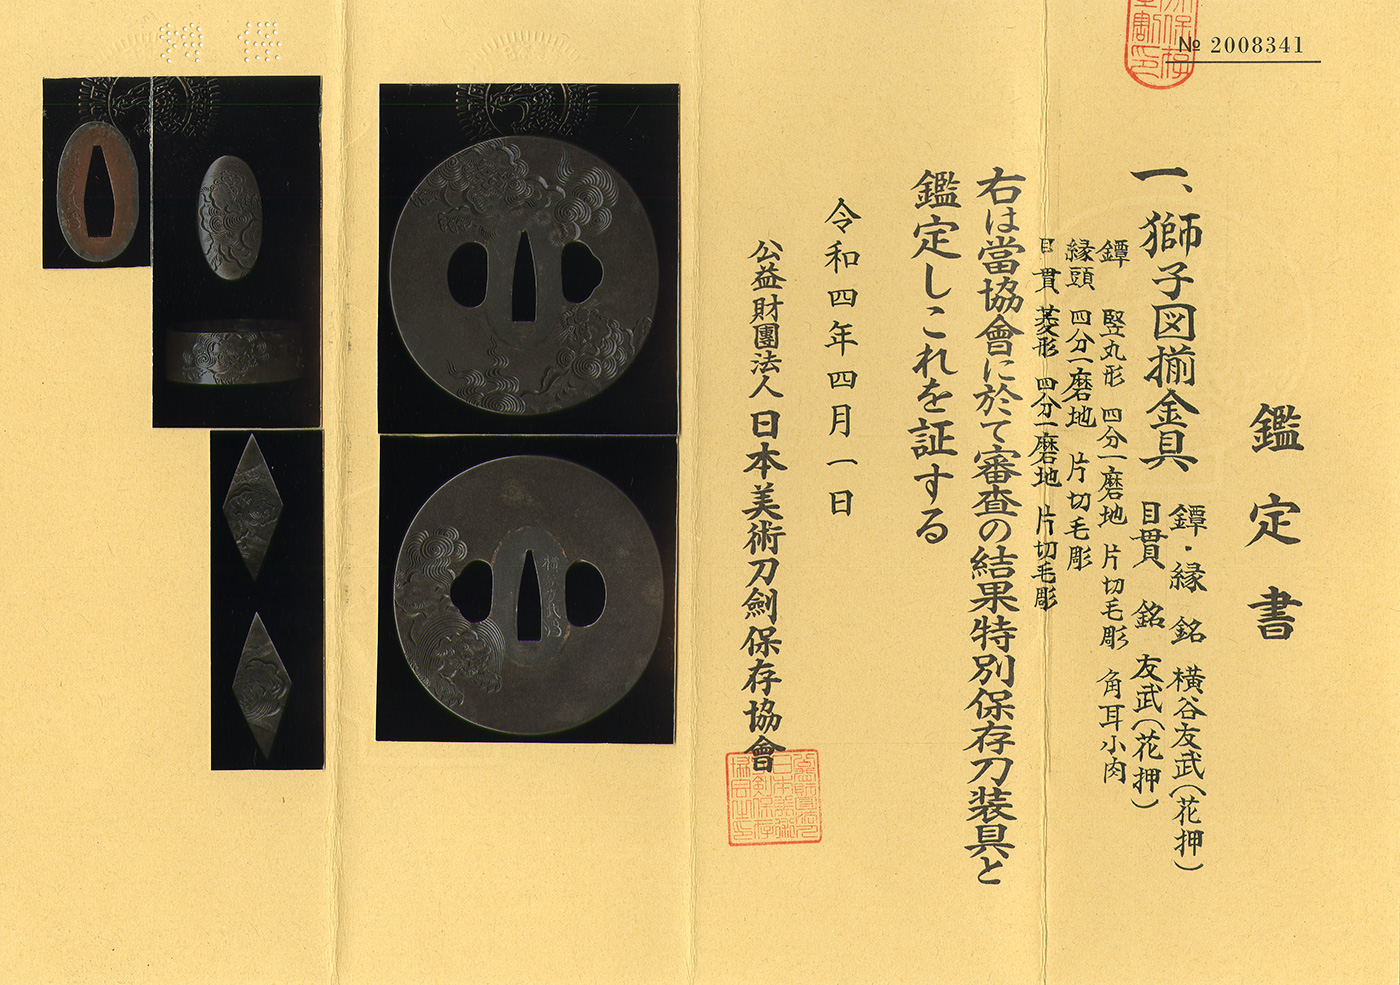 № 2008341
鑑定書
一、獅子図揃金具
鐔・縁 銘 横谷友武(花押)
目貫 銘 友武(花押)
鐔 竪丸形 四分一磨地 片切毛彫 角耳小肉
縁頭 四分一磨地 片切毛彫
目貫 菱形 四分一磨地 片切毛彫
右は當協會に於て審査の結果特別保存刀装具と
鑑定しこれを証する
令和四年四月一日
公益財團法人 日本美術刀劍保存協會
横谷友武